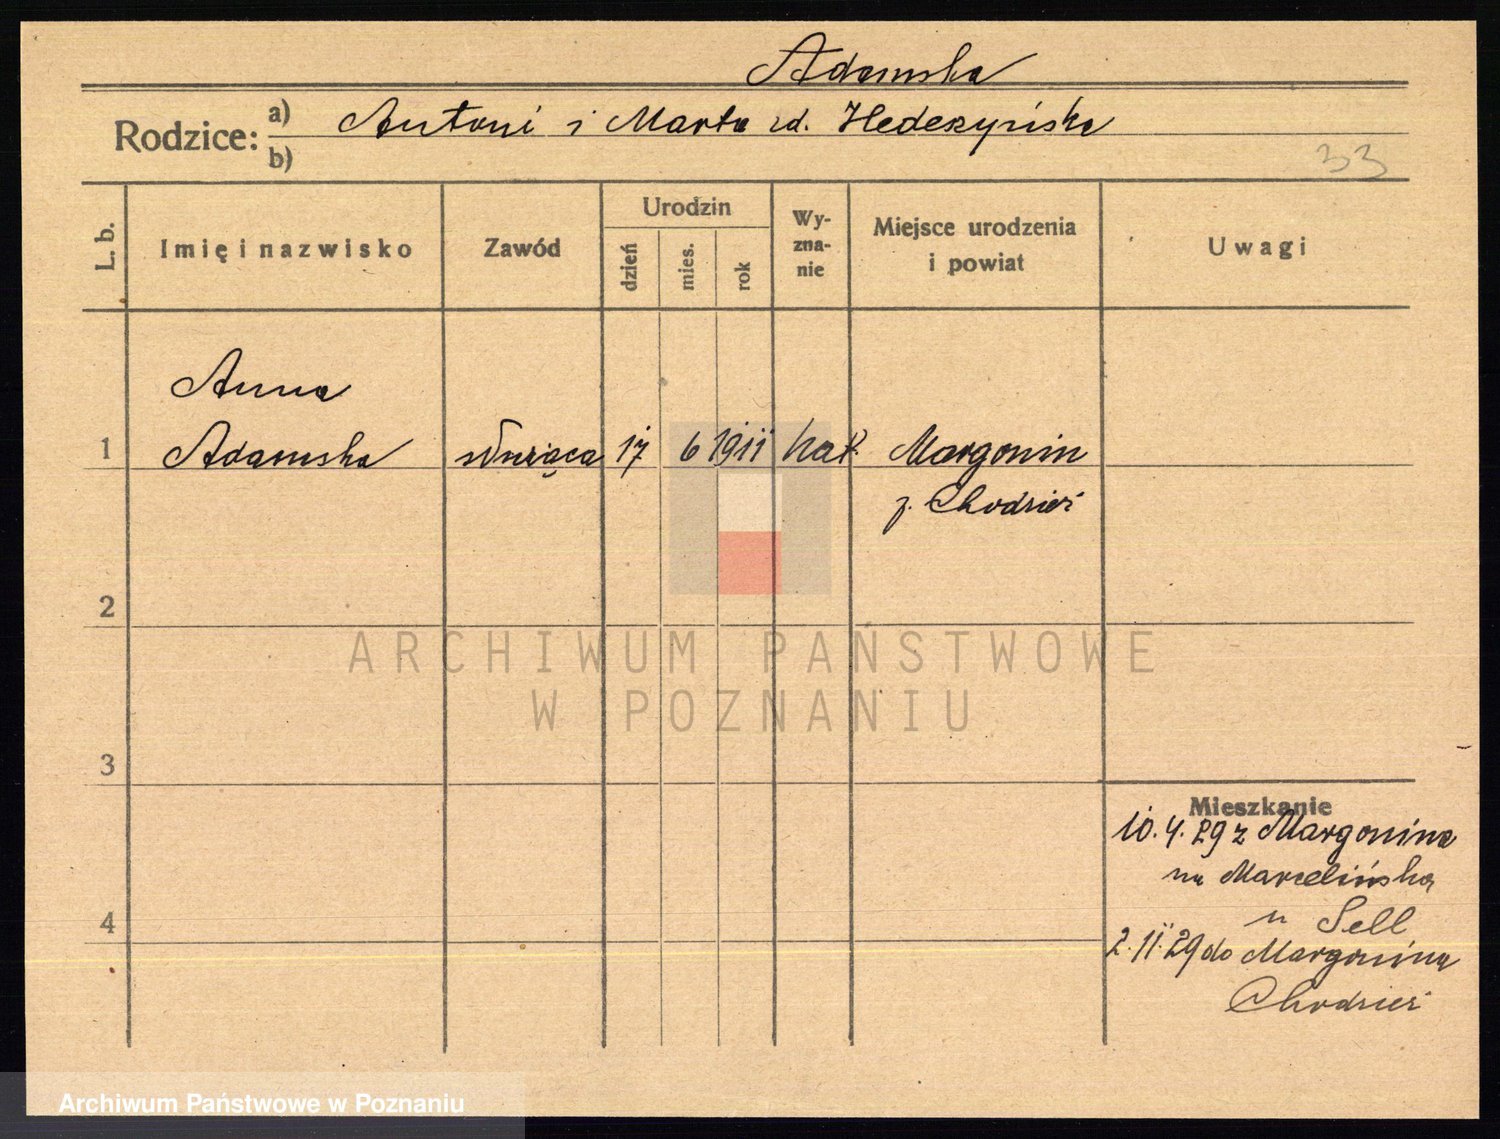 Adamska
Rodzice: a) Antoni i Marta zd. Hedeszyńska
b)
33
L. b.
Imię i nazwisko
Zawód
Urodzin
dzień
mies.
rok
Wy-
zna-
nie
Miejsce urodzenia
i powiat
Uwagi
Anna
1 Adamska służąca 17 6 1911 kat. Margonin
p. Chodzież
2
ARCHIWUM PAŃSTWOWE
W POZNANIU
3
Mieszkanie
10.4.29 z Margonina
na Marcelińską
u Sell
4
2.11.29 do Margonina
Chodzież
Archiwum Państwowe w Poznaniu